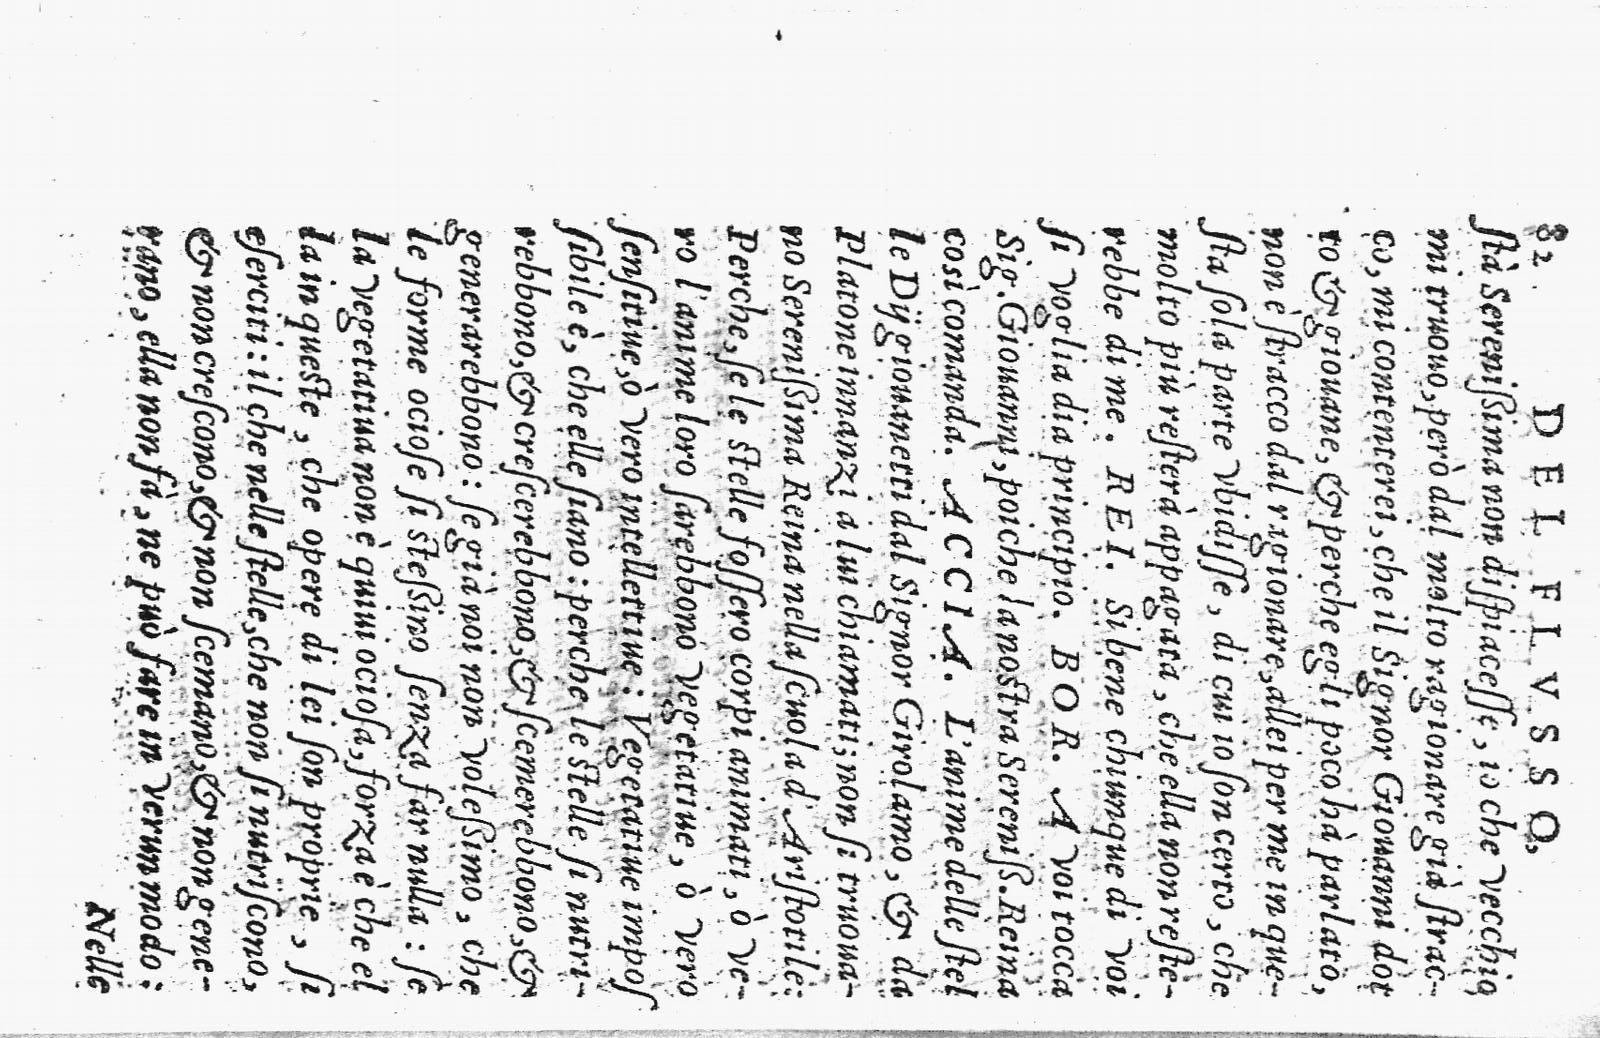 82 DEL FLVSSO,
ſtà Sereniſsima non diſpiaceſſe, io che vecchio
mi truouo, però dal molto ragionare già ſtrac-
co, mi contenterei, che il Signor Giouanni dot
to & giouane, & perche egli poco hà parlato,
non è ſtracco dal ragionare, allei per me in que-
ſta ſola parte vbidiſſe, di cui io ſon certo, che
molto più reſterà appagata, che ella non reſte-
rebbe di me. REI. Sibene chiunque di voi
ſi voglia dia principio. BOR. A voi tocca
Sig. Giouanni, poiche la noſtra Sereniſs. Reina
così comanda. ACCIA. L'anime delle ſtel
le Dij giouinetti dal Signor Girolamo, & da
Platone innanzi a lui chiamati; non ſi truoua-
no Sereniſsima Reina nella ſcuola d'Ariſtotile:
Perche, ſe le ſtelle foſſero corpi animati, ò ve-
ro l'anime loro ſarebbono vegetatiue, ò vero
ſenſitiue, ò vero intellettiue: Vegetatiue impoſ
ſibile è, che elle ſiano: perche le ſtelle ſi nutri-
rebbono, & creſcerebbono, & ſcemerebbono, &
generarebbono: ſe già noi non voleſsimo, che
le forme ocioſe ſi ſteſsiro ſenza far nulla: ſe
la vegetatiua non è quiui ocioſa, forza è che el
la in queſte, che opere di lei ſon proprie, ſi
eſerciti: il che nelle ſtelle, che non ſi nutriſcono,
& non creſcono, & non ſcemano, & non gene-
rano, ella non fà, ne può fare in verun modo:
Nelle